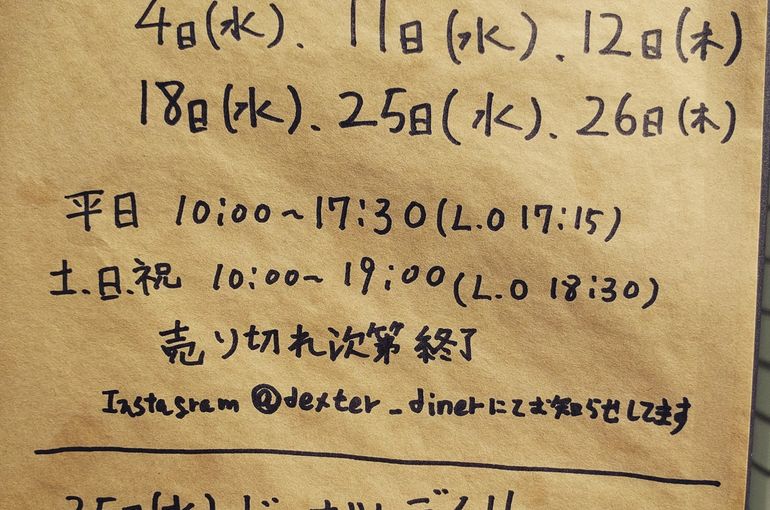 4日(水). 11日(水). 12日(木)
18日(水). 25日(水). 26日(木)
平日 10:00~17:30(L.O 17:15)
土.日.祝 10:00~ 19:00(L.O 18:30)
売り切れ次第終了
Instagram @dexter_dinerにてお知らせしてます
25日(水)